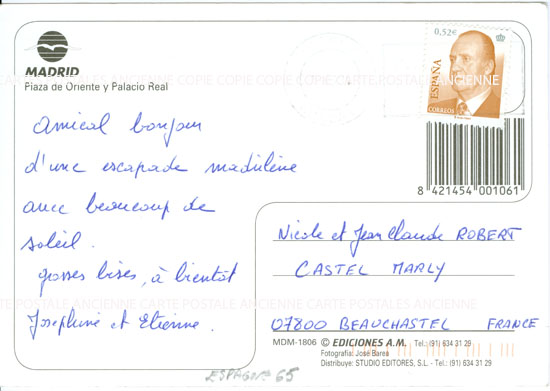 MADRID
Plaza de Oriente y Palacio Real
COPIE CARTE POSTALES ANCIENNE COPIE COPIE COPIE COPIE CARTE POSTALE ANCIENNE
0,52€
ESPAÑA
CORREOS
8 421454 001061
Amical bonjour
d'une escapade madrilène
avec beaucoup de
soleil.
grosses bises, à bientôt
Josephine et Etienne.
Nicole et Jean Claude ROBERT
CASTEL MARLY
07800 BEAUCHASTEL FRANCE
MDM-1806 © EDICIONES A.M. Tel.: (91) 634 31 29
Fotografía: José Barea
Distribuye: STUDIO EDITORES, S.L. - Tel.: (91) 634 31 29
ESPAGNE 65